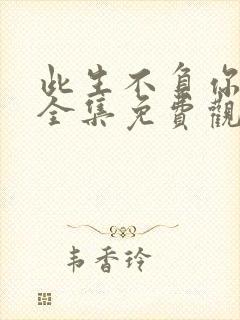 此生不負你
全集免費觀
韦香玲